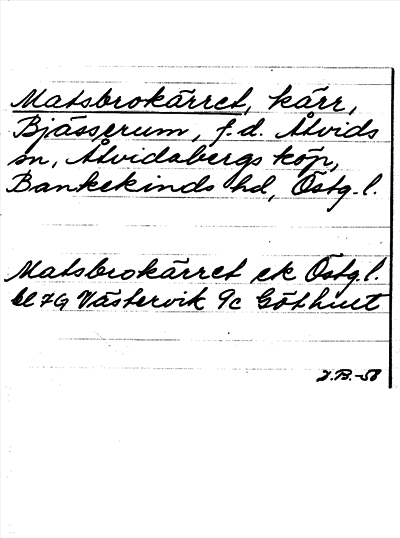 Matsbrokärret, kärr,
Bjässerum, f.d. Åtvids
sn, Åtvidabergs köp,
Bankekinds hd, Östg. l.
Matsbrokärret ek Östg. l.
bl 79 Västervik 9c
J.B.-58